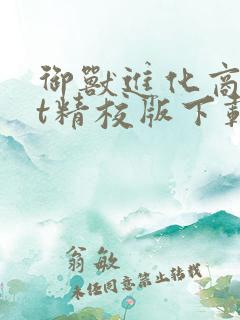 御獸進化商
t精校版下載
翁敏
未经同意禁止转载